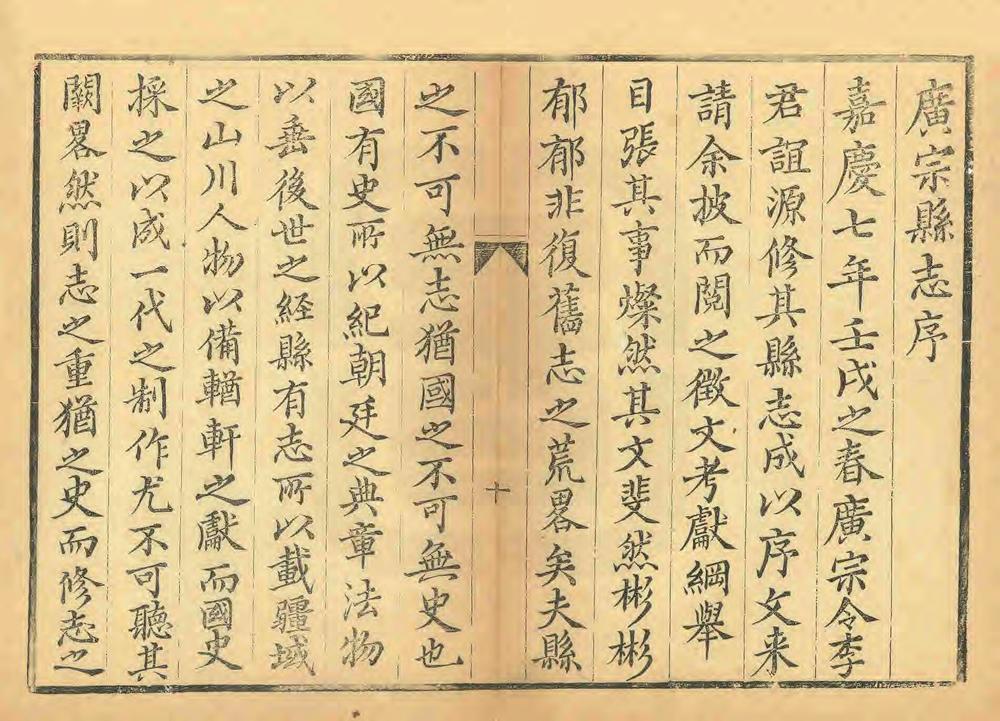 廣宗縣志序
嘉慶七年壬戌之春廣宗令李
君誼源修其縣志成以序文来
請余披而閱之徵文考獻綱舉
目張其事燦然其文斐然彬彬
郁郁非復舊志之荒畧矣夫縣
十
之不可無志猶國之不可無史也
國有史所以紀朝廷之典章法物
以垂後世之經縣有志所以載疆域
之山川人物以備輶軒之獻而國史
採之以成一代之制作尤不可聽其
闕畧然則志之重猶之史而修志之